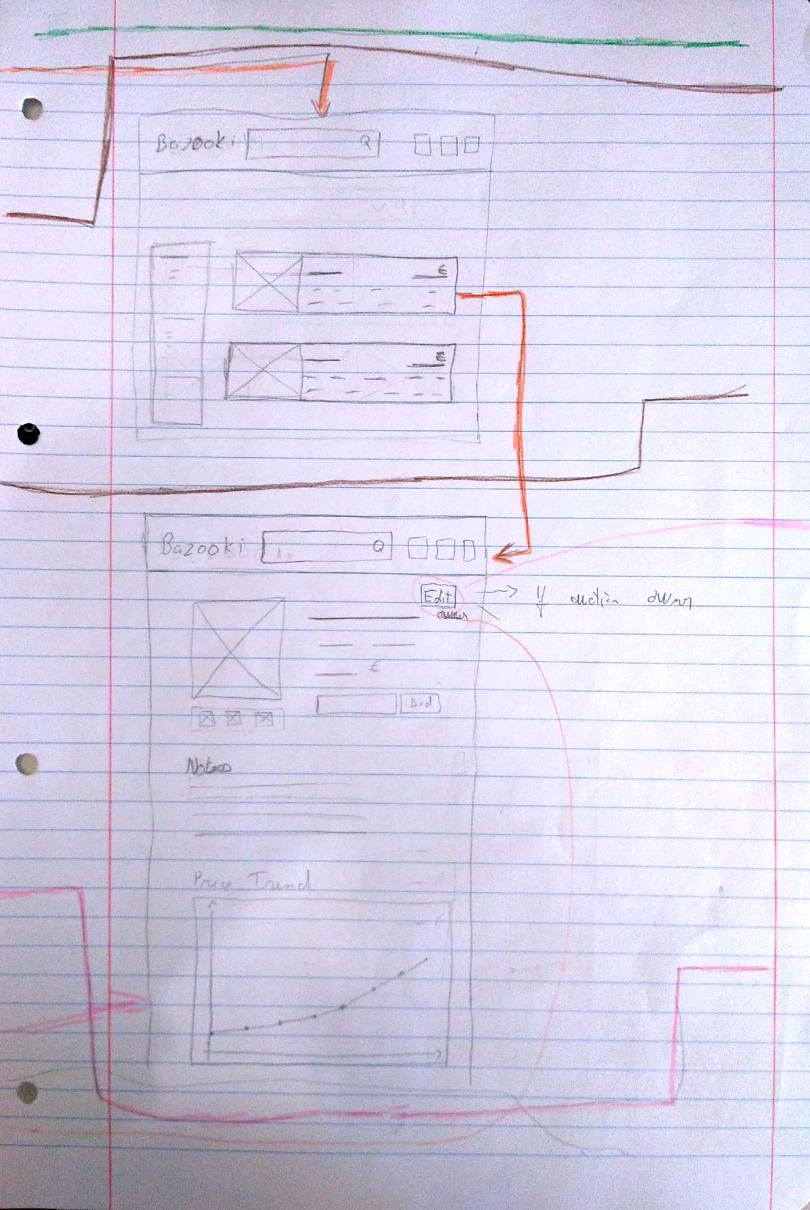 Bazooki
€
€
Bazooki
Edit
owner
auction owner
€
Bid
Notes
Price Trend